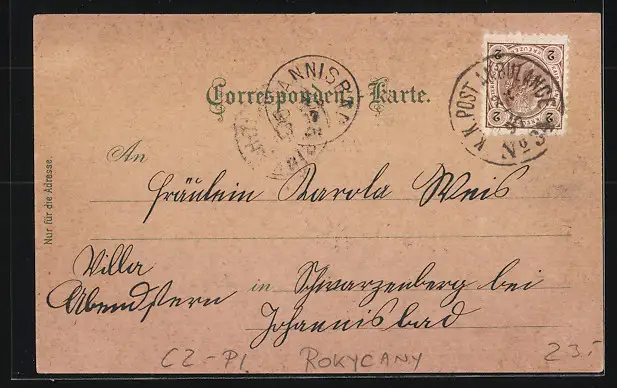 Correspondenz-Karte.
JOHANNISBAD
K.K. POST AMBULANCE
No 34
2 2
2 2
Nur für die Adresse.
An
Fräulein Karola Weis
Villa
Abendstern
in Schwarzenberg bei
Johannisbad
CZ-Pl. ROKYCANY 23.-